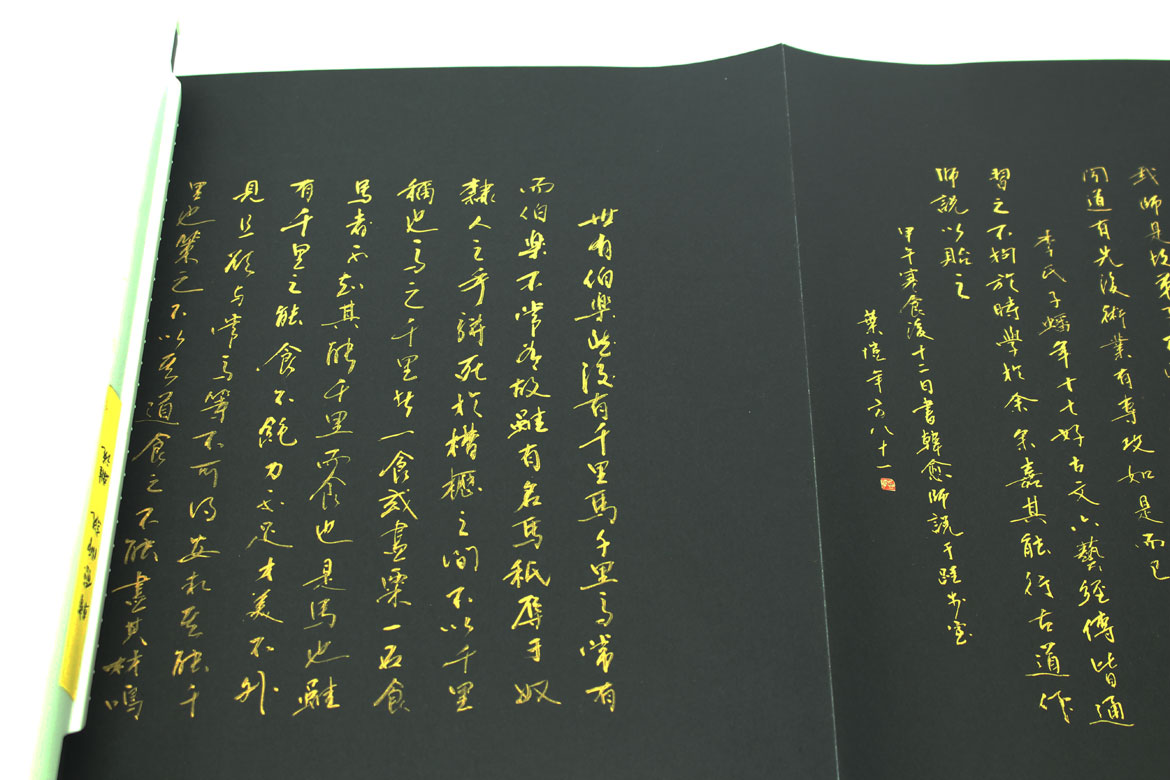 我師是故弟子不
聞道有先後術業有專攻如是而已
李氏子蟠年十七好古文六藝經傳皆通
習之不拘於時學於余余嘉其能行古道作
師說以貽之
甲午寒食後十二日書韓愈師說于跬步室
葉愷年方八十一
世有伯樂然後有千里馬千里馬常有
而伯樂不常有故雖有名馬秖辱于奴
隸人之手駢死於槽櫪之間不以千里
稱也馬之千里者一食或盡粟一石食
馬者不知其能千里而食也是馬也雖
有千里之能食不飽力不足才美不外
見且欲與常馬等不可得安求其能千
里也策之不以其道食之不能盡其材鳴